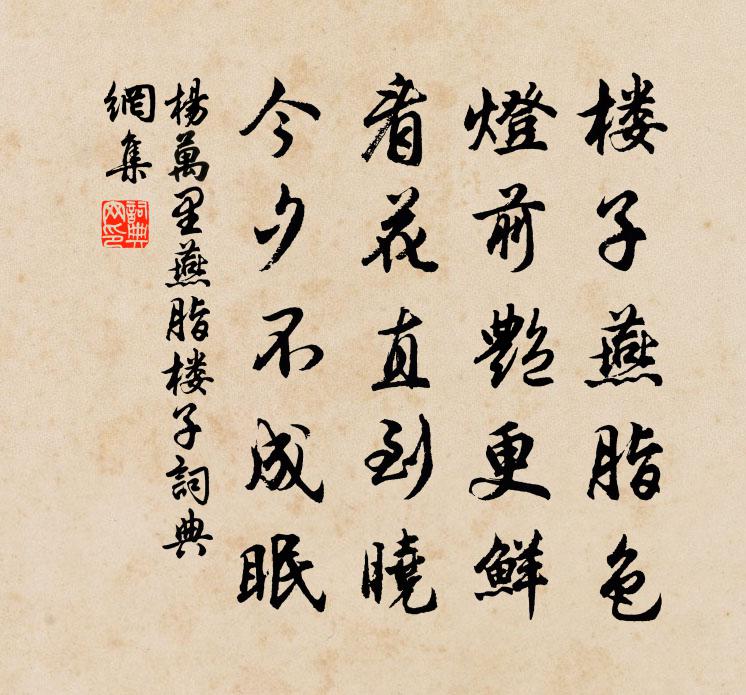 楼子燕脂色
燈前艶更鮮
看花直到曉
今夕不成眠
楊萬里燕脂楼子詞典
網集
詞典
網印